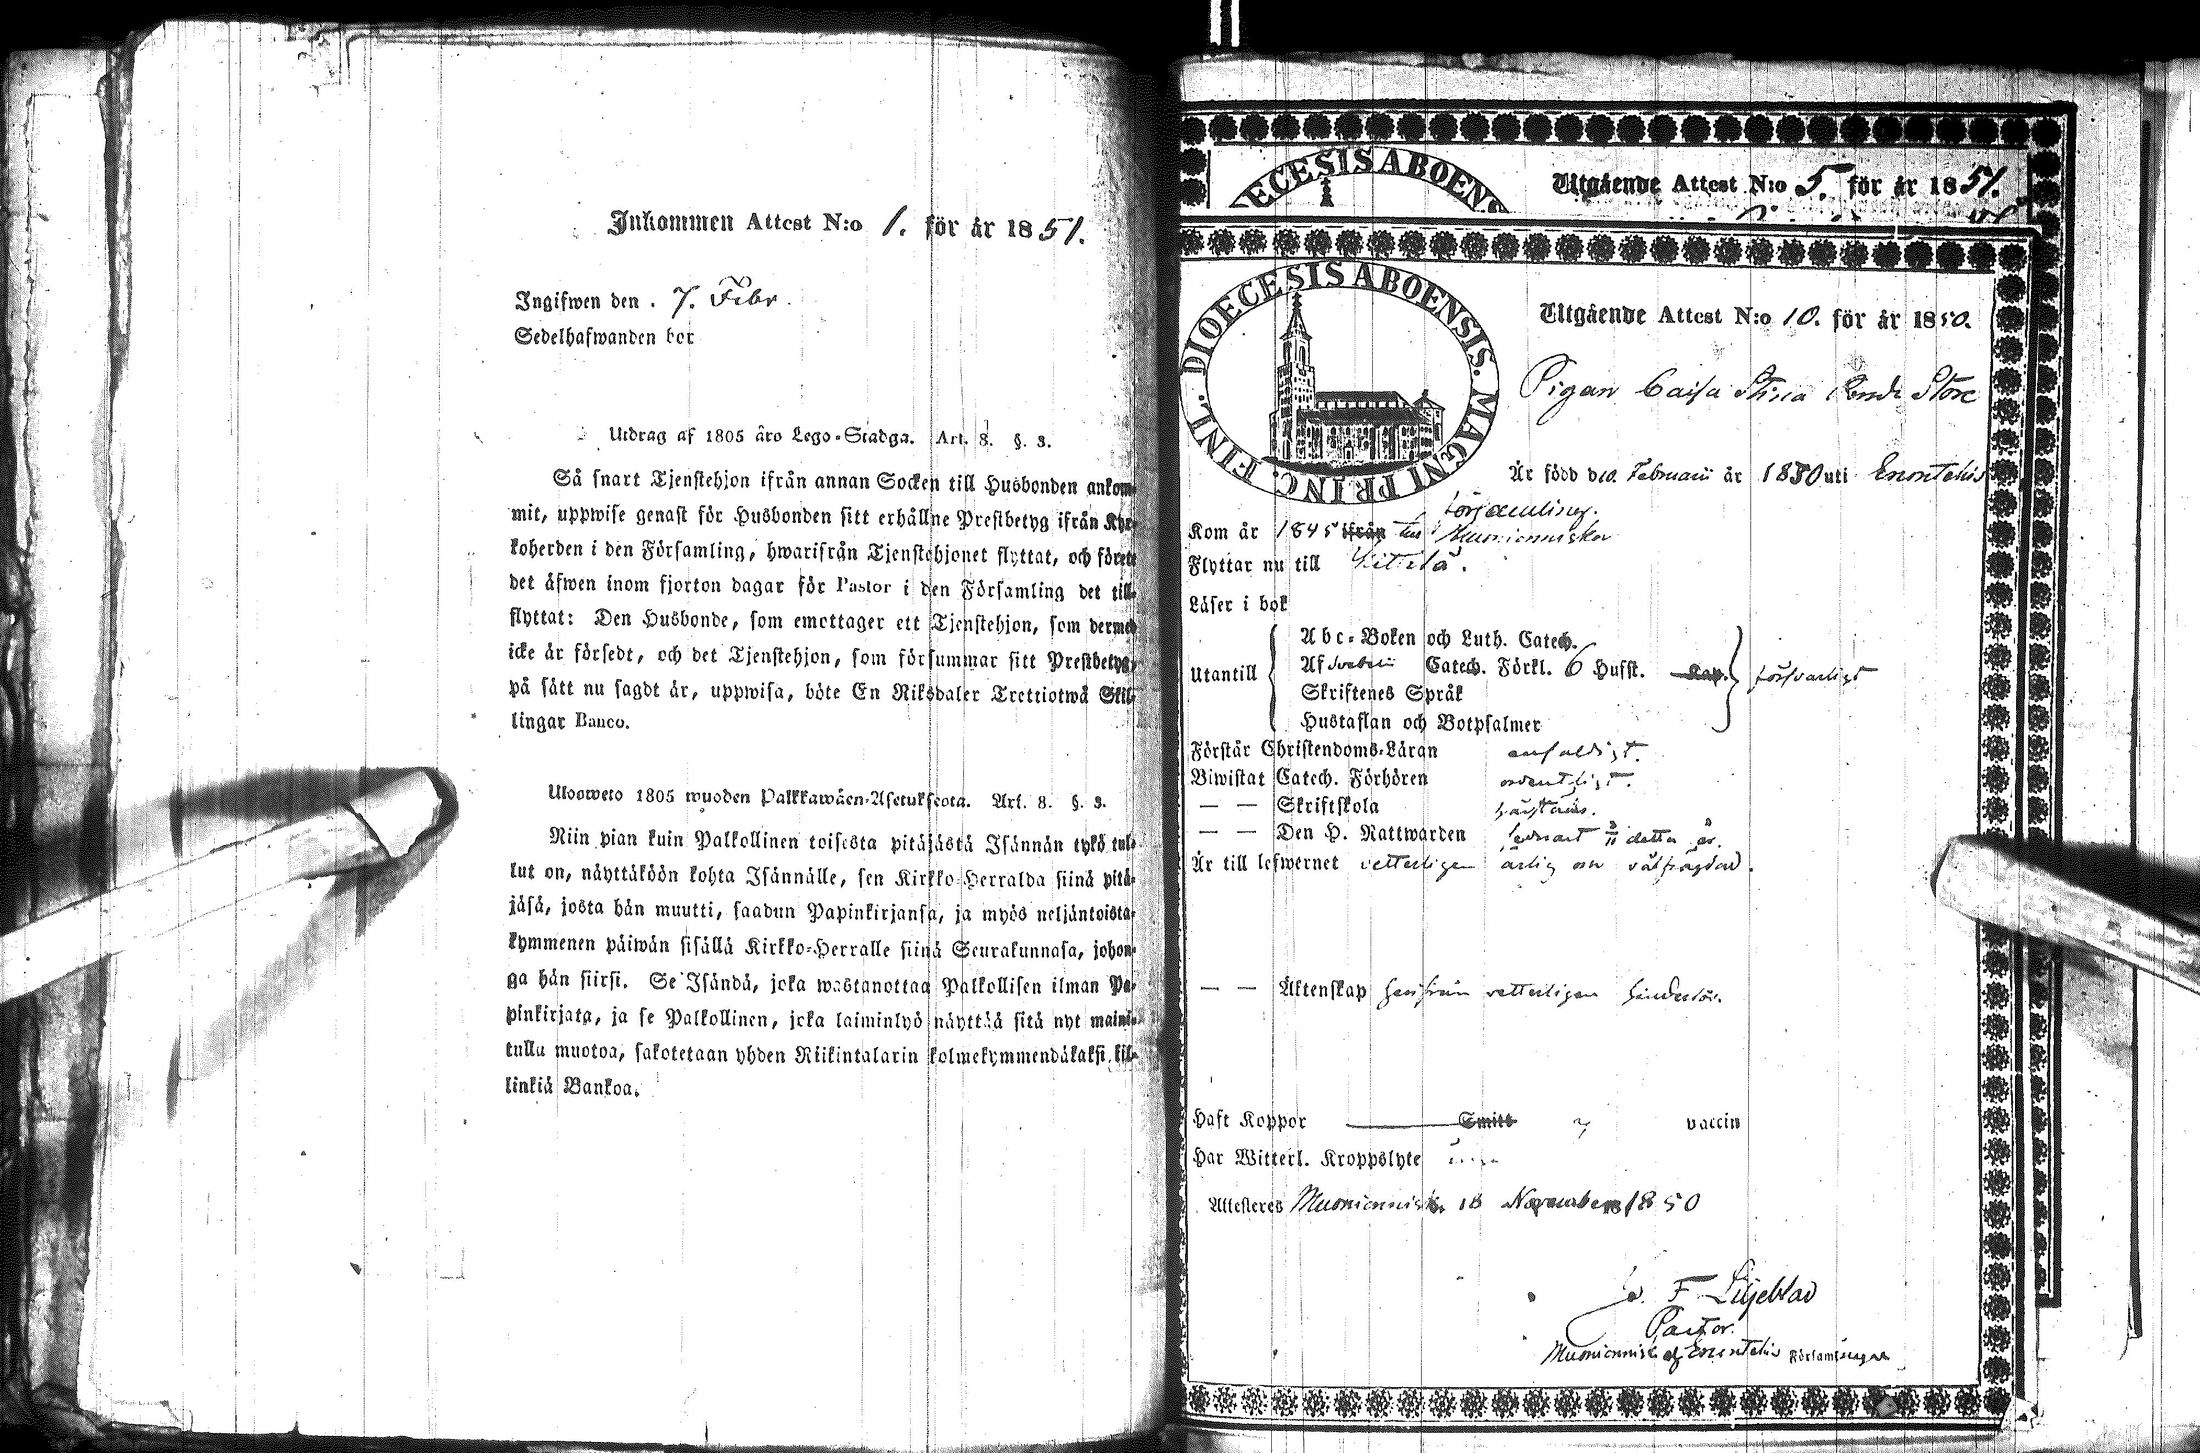 Inkommen Attest N:o 1. för år 1851.
Ingifwen den 7. Febr.
Sedelhafwanden bor
Utdrag af 1805 års Lego-Stadga. Art. 8. §. 3.
Så snart Tjenstehjon ifrån annan Socken till Husbonden ankom-
mit, uppwise genast för Husbonden sitt erhållne Prestbetyg ifrån Kyr-
koherden i den Församling, hwarifrån Tjenstehjonet flyttat, och förete
det äfwen inom fjorton dagar för Pastor i den Församling det till-
flyttat: Den Husbonde, som emottager ett Tjenstehjon, som dermed
icke är försedt, och det Tjenstehjon, som försummar sitt Prestbetyg,
på sätt nu sagdt är, uppwisa, böte En Riksdaler Trettiotwå Skil-
lingar Banco.
Ulosweto 1805 wuoden Palkkawäen-Asetuksesta. Art. 8. §. 3.
Niin pian kuin Palkollinen toisesta pitäjästä Isännän tykö tul-
lut on, näyttäköön kohta Isännälle, sen Kirkko-Herralda siinä pitä-
jäsä, josta hän muutti, saadun Papinkirjansa, ja myös neljäntoista-
kymmenen päiwän sisällä Kirkko-Herralle siinä Seurakunnasa, johon-
ga hän siirsi. Se Isändä, joka wastanottaa Palkollisen ilman Pa-
pinkirjata, ja se Palkollinen, joka laiminlyö näyttää sitä nyt maini-
tulla muotoa, sakotetaan yhden Riikintalarin kolmekymmendäkaksi kil-
linkiä Bankoa.
ECESIS ABOENS
Utgående Attest N:o 5. för år 1851.
DIOECESIS ABOENSIS. MAGNI PRINC. FINL.
Utgående Attest N:o 10. för år 1850.
Pigan Caisa Stina Store
Är född d 10. Februarii år 1830 uti Enontekis
församling.
Kom år 1845 ifrån till Muonionniska
Flyttar nu till Kittilä.
Läser i bok
Abc-Boken och Luth. Catech.
Utantill Af Svebelii Catech. Förkl. 6 Hufst. Kap. försvarligt
Skriftenes Språk
Hustaflan och Botpsalmer
Förstår Christendoms-Läran enfaldigt.
Biwistat Catech. Förhören ordentligt.
— — Skriftskola
— — Den H. Nattwarden senast detta år.
Är till lefwernet vetterligen ärlig och välfrägdad.
— — Äktenskap härifrån vetterligen hinderlös.
Haft Koppor Smitt vaccin
Har Witterl. Kroppslyte inga
Attesteras Muonionniska 18 November 1850
F Liljeblad
Pastor.
Muonionniska of Enontekis Församlingar